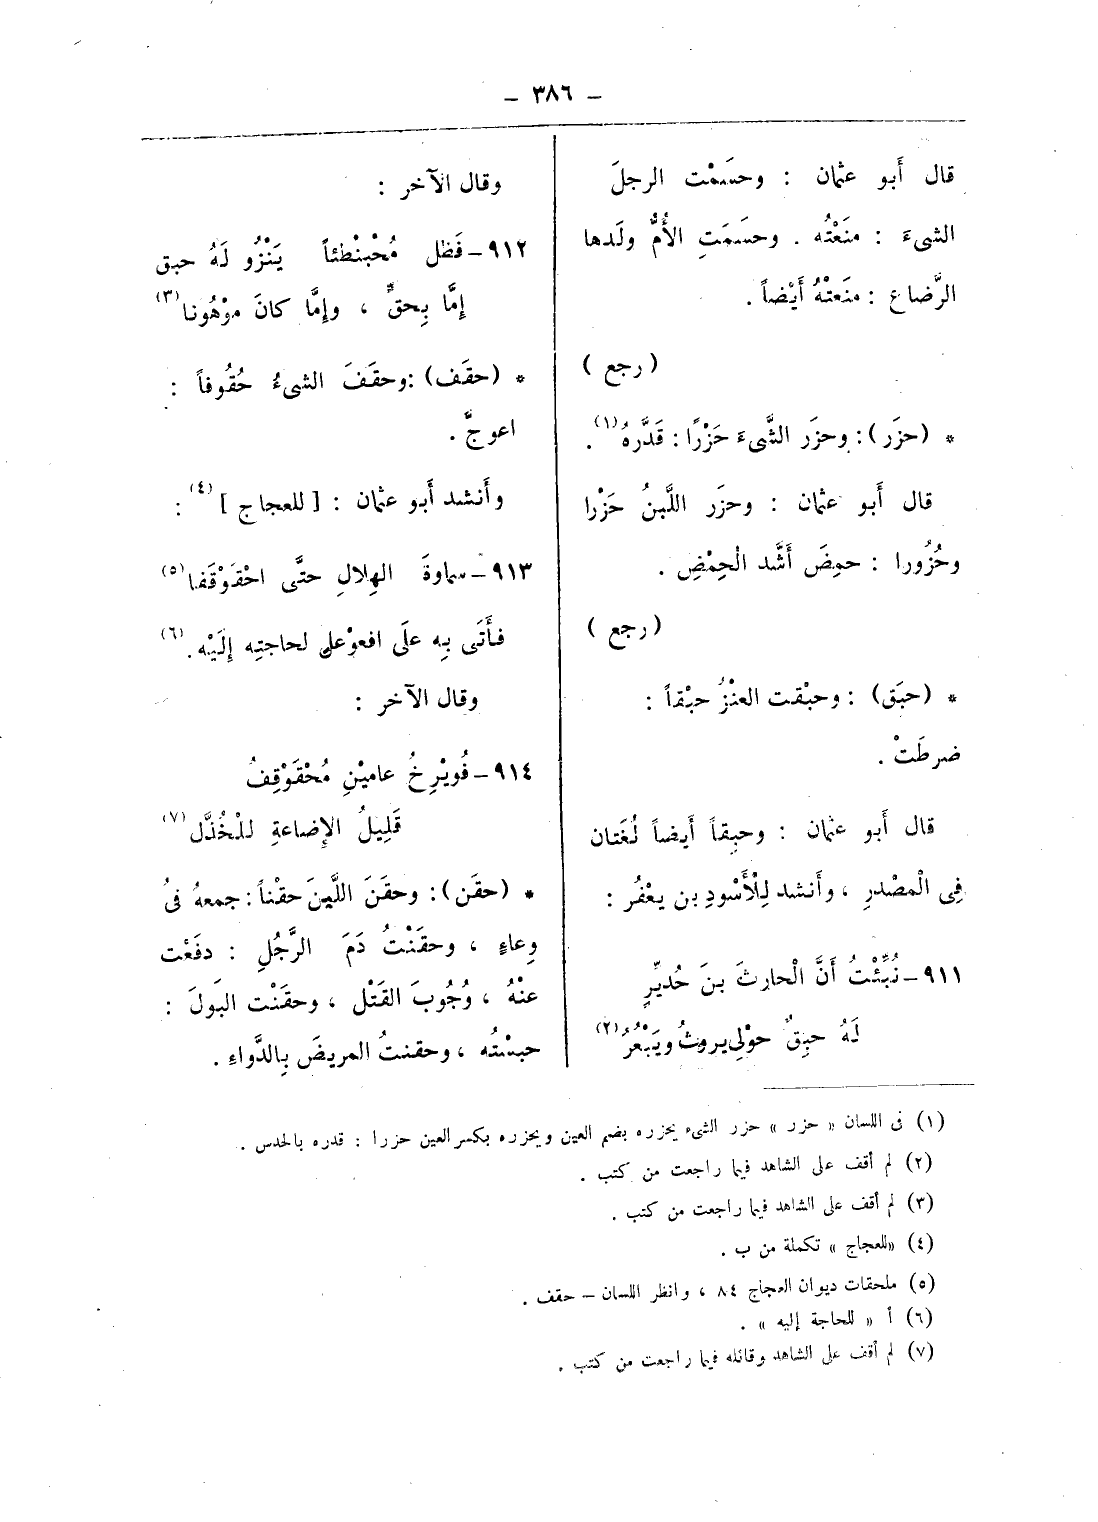 – ٣٨٦ –
قال أَبو عثمان : وحسَمْت الرجلَ
الشىءَ : منَعْتُه . وحسَمَتِ الأُمُّ ولَدها
الرَّضاع : منَعتْهُ أَيْضاً .
( رجع )
* (حزَر ) : وحزَر الشَّىءَ حَزْرًا : قَدَّرهُ (١) .
قال أَبو عثمان : وحزَر اللَّبنُ حَزْرا
وحُزُورا : حمِضَ أَشَّد الْحِمْضِ .
( رجع )
* (حبَق) : وحبْقت العنْزُ حبْقاً :
ضرطَتْ .
قال أَبو عثمان : وحبِقاً أَيضاً لُغَتان
فِى الْمصْدرِ ، وأَنشد لِلْأَسْودِ بن يعْفُر :
٩١١ – نُبِّئْتُ أَنَّ الْحارثَ بنَ حُديِّرٍ
لَهُ حبِقٌ حوْلِى يروثُ ويَبْعُرُ (٢)
وقال الآخر :
٩١٢ – فَظل مُحْبنْطئاً يَنْزُو لَهُ حبق
إِمَّا بِحقٍّ ، وإِمَّا كانَ موْهُونا (٣)
* (حقَف) : وحقَفَ الشىءُ حُقُوفاً :
اعوجَّ .
وأَنشد أَبو عثمان : [ للعجاج ] (٤) :
٩١٣ – سماوةَ الهِلالِ حتَّى احْقَوْقَفا (٥)
فأَتَى بِه علَى افعوْعل لحاجتِه إِلَيْه . (٦)
وقال الآخر :
٩١٤ – فُويْرِخُ عاميْنِ مُحْقَوْقِفُ
قَلِيلُ الإِضاعةِ للْخُذَّل (٧)
* (حقَن) : وحقَنَ اللَّبنَ حقْناً : جمعهُ فىُ
وِعاءٍ ، وحقَنْتُ دَمَ الرَّجُلِ : دفَعْت
عنْهُ ، وُجُوبَ القَتْل ، وحقَنْت البَولَ :
حبسْتُه ، وحقنتُ المريضَ بِالدَّواءِ .
(١) فى اللسان « حزر » حزر الشىء يحزره بضم العين ويحزره بكسر العين حزرا : قدره بالحدس .
(٢) لم أقف على الشاهد فيما راجعت من كتب .
(٣) لم أقف على الشاهد فيما راجعت من كتب .
(٤) «للعجاج » تكملة من ب .
(٥) ملحقات ديوان العجاج ٨٤ ، وانظر اللسان – حقف .
(٦) أ « للحاجة إليه » .
(٧) لم أقف على الشاهد وقائله فيما راجعت من كتب .